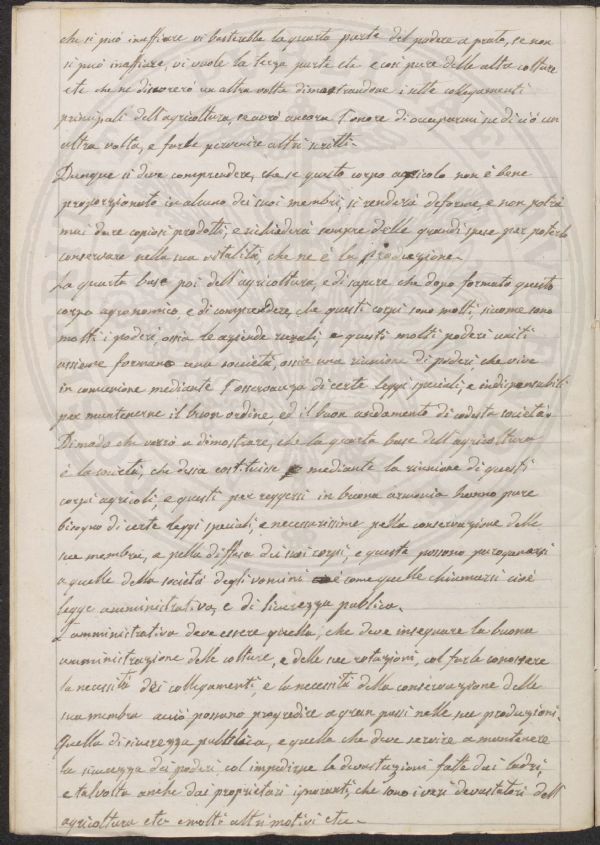 che si può inaffiare vi basterebbe la quarta parte del podere a prato, se non
si può inaffiare, vi vuole la terza parte etc e così pure delle altre colture
etc che ne discorerò un altra volta dimostrandone i sette collegamenti
principali dell'agricoltura, se avrò ancora l'onore di occuparmi se di ciò un
altra volta, e farle pervenire altri scritti.
Dunque si deve comprendere, che se questo corpo agricolo non è bene
proporzionato in alcuno dei suoi membri, si renderà deforme, e non potrà
mai dare copiosi prodotti, e richiederà sempre delle grandi spese per poterlo
conservare nella sua vitalità, che ne è la produzione.
La quarta base poi dell'agricoltura, è di sapere che dopo formato questo
corpo agronomico, e di comprendere, che questi corpi sono molti, sicome sono
molti i poderi, ossia le aziende rurali, e questi molti poderi uniti
assieme formano una società, ossia una riunione di poderi, che vive
in comunione mediante l'osservanza di certe leggi speciali, e indispensabili
per mantenerne il buon ordine, ed il buon andamento di codesta società.
Dimodo che verrò a dimostrare, che la quarta base dell'agricoltura
è la società, che dessa costituisce mediante la riunione di questi
corpi agricoli, e questi per reggersi in buona armonia hanno pure
bisogno di certe leggi speciali, e necessarissime pella conservazione delle
sue membra, e pella diffesa dei suoi corpi, e queste possono paragonarsi
a quelle della società degli uomini e come quelle chiamarsi cioè
legge amministrativa, e di sicurezza publica.
L'amministrativa deve essere quella, che deve insegnare la buona
amministrazione delle colture, e delle sue rotazioni, col farle conoscere
la necessità dei collegamenti, e la necessità della conservazione delle
sua membra acciò possano progredire a gran passi nelle sue produzioni.
Quella di sicurezza pubblica, e quella che deve servire a mantenere
la sicurezza dei poderi, col impedirne le devastazioni fatte dai ladri,
e talvolta anche dai proprietari ignoranti, che sono i veri devastatori dell'
agricoltura etc e molti altri motivi etc.